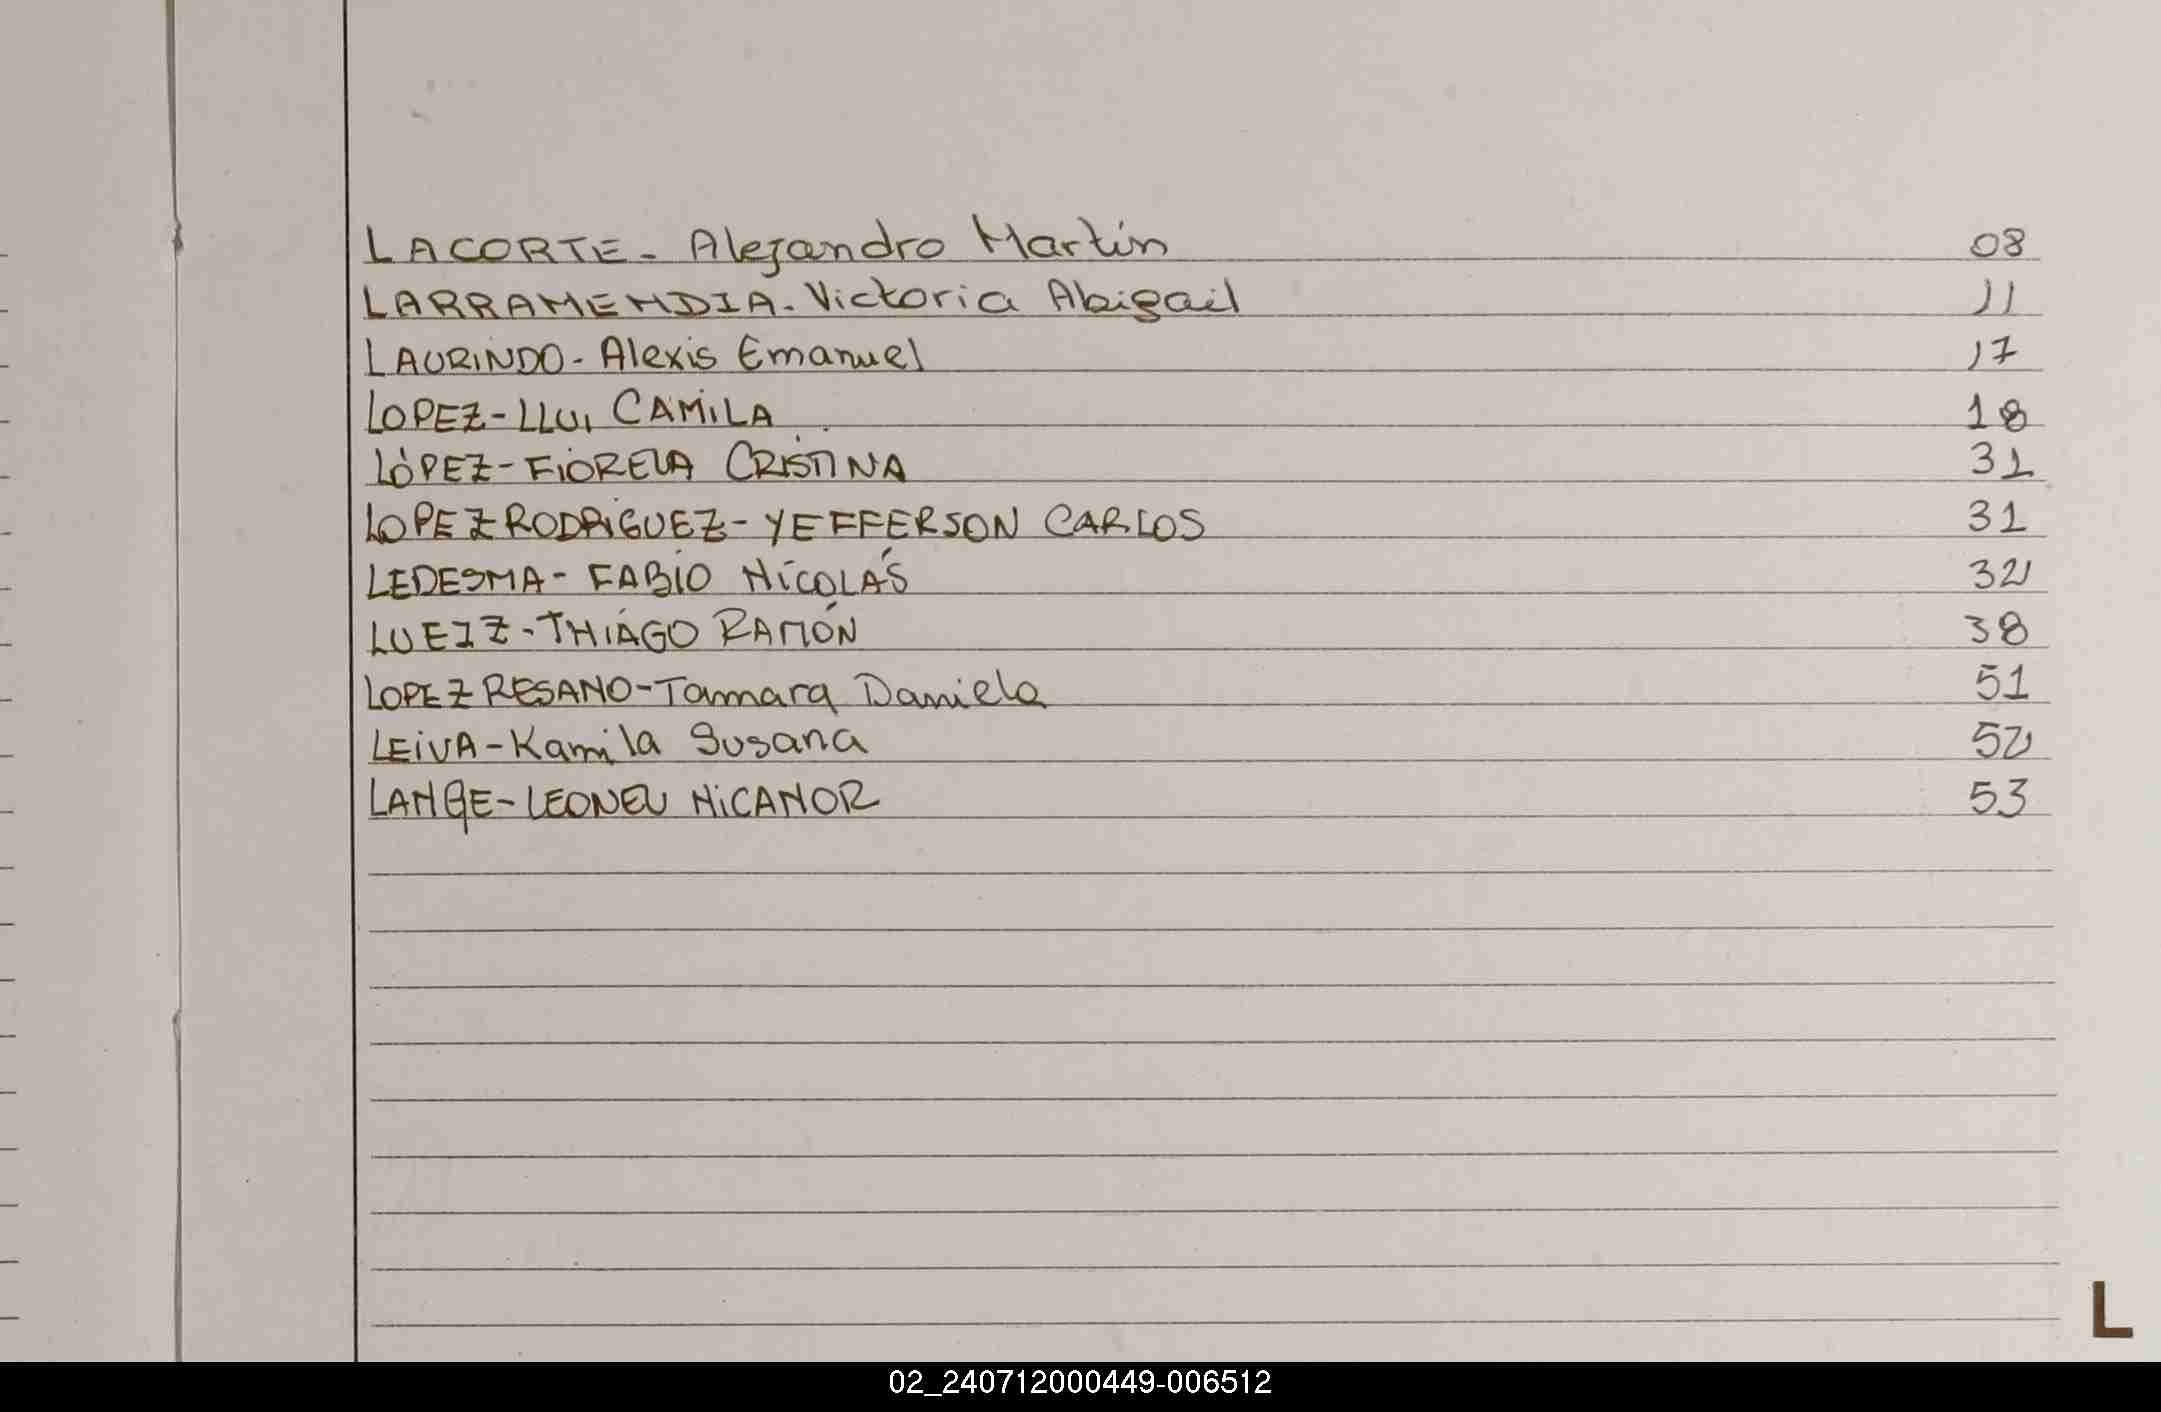 LACORTE - Alejandro Martin 08
LARRAMENDIA - Victoria Abigail 11
LAURINDO - Alexis Emanuel 17
LOPEZ - LLUI CAMILA 18
LÓPEZ - FIORELA CRISTINA 31
LOPEZ RODRIGUEZ - YEFFERSON CARLOS 31
LEDESMA - FABIO NICOLÁS 32
LUEIZ - THIAGO RAMÓN 38
LOPEZ RESANO - Tamara Daniela 51
LEIVA - Kamila Susana 52
LANGE - LEONEL NICANOR 53
L
02_240712000449-006512